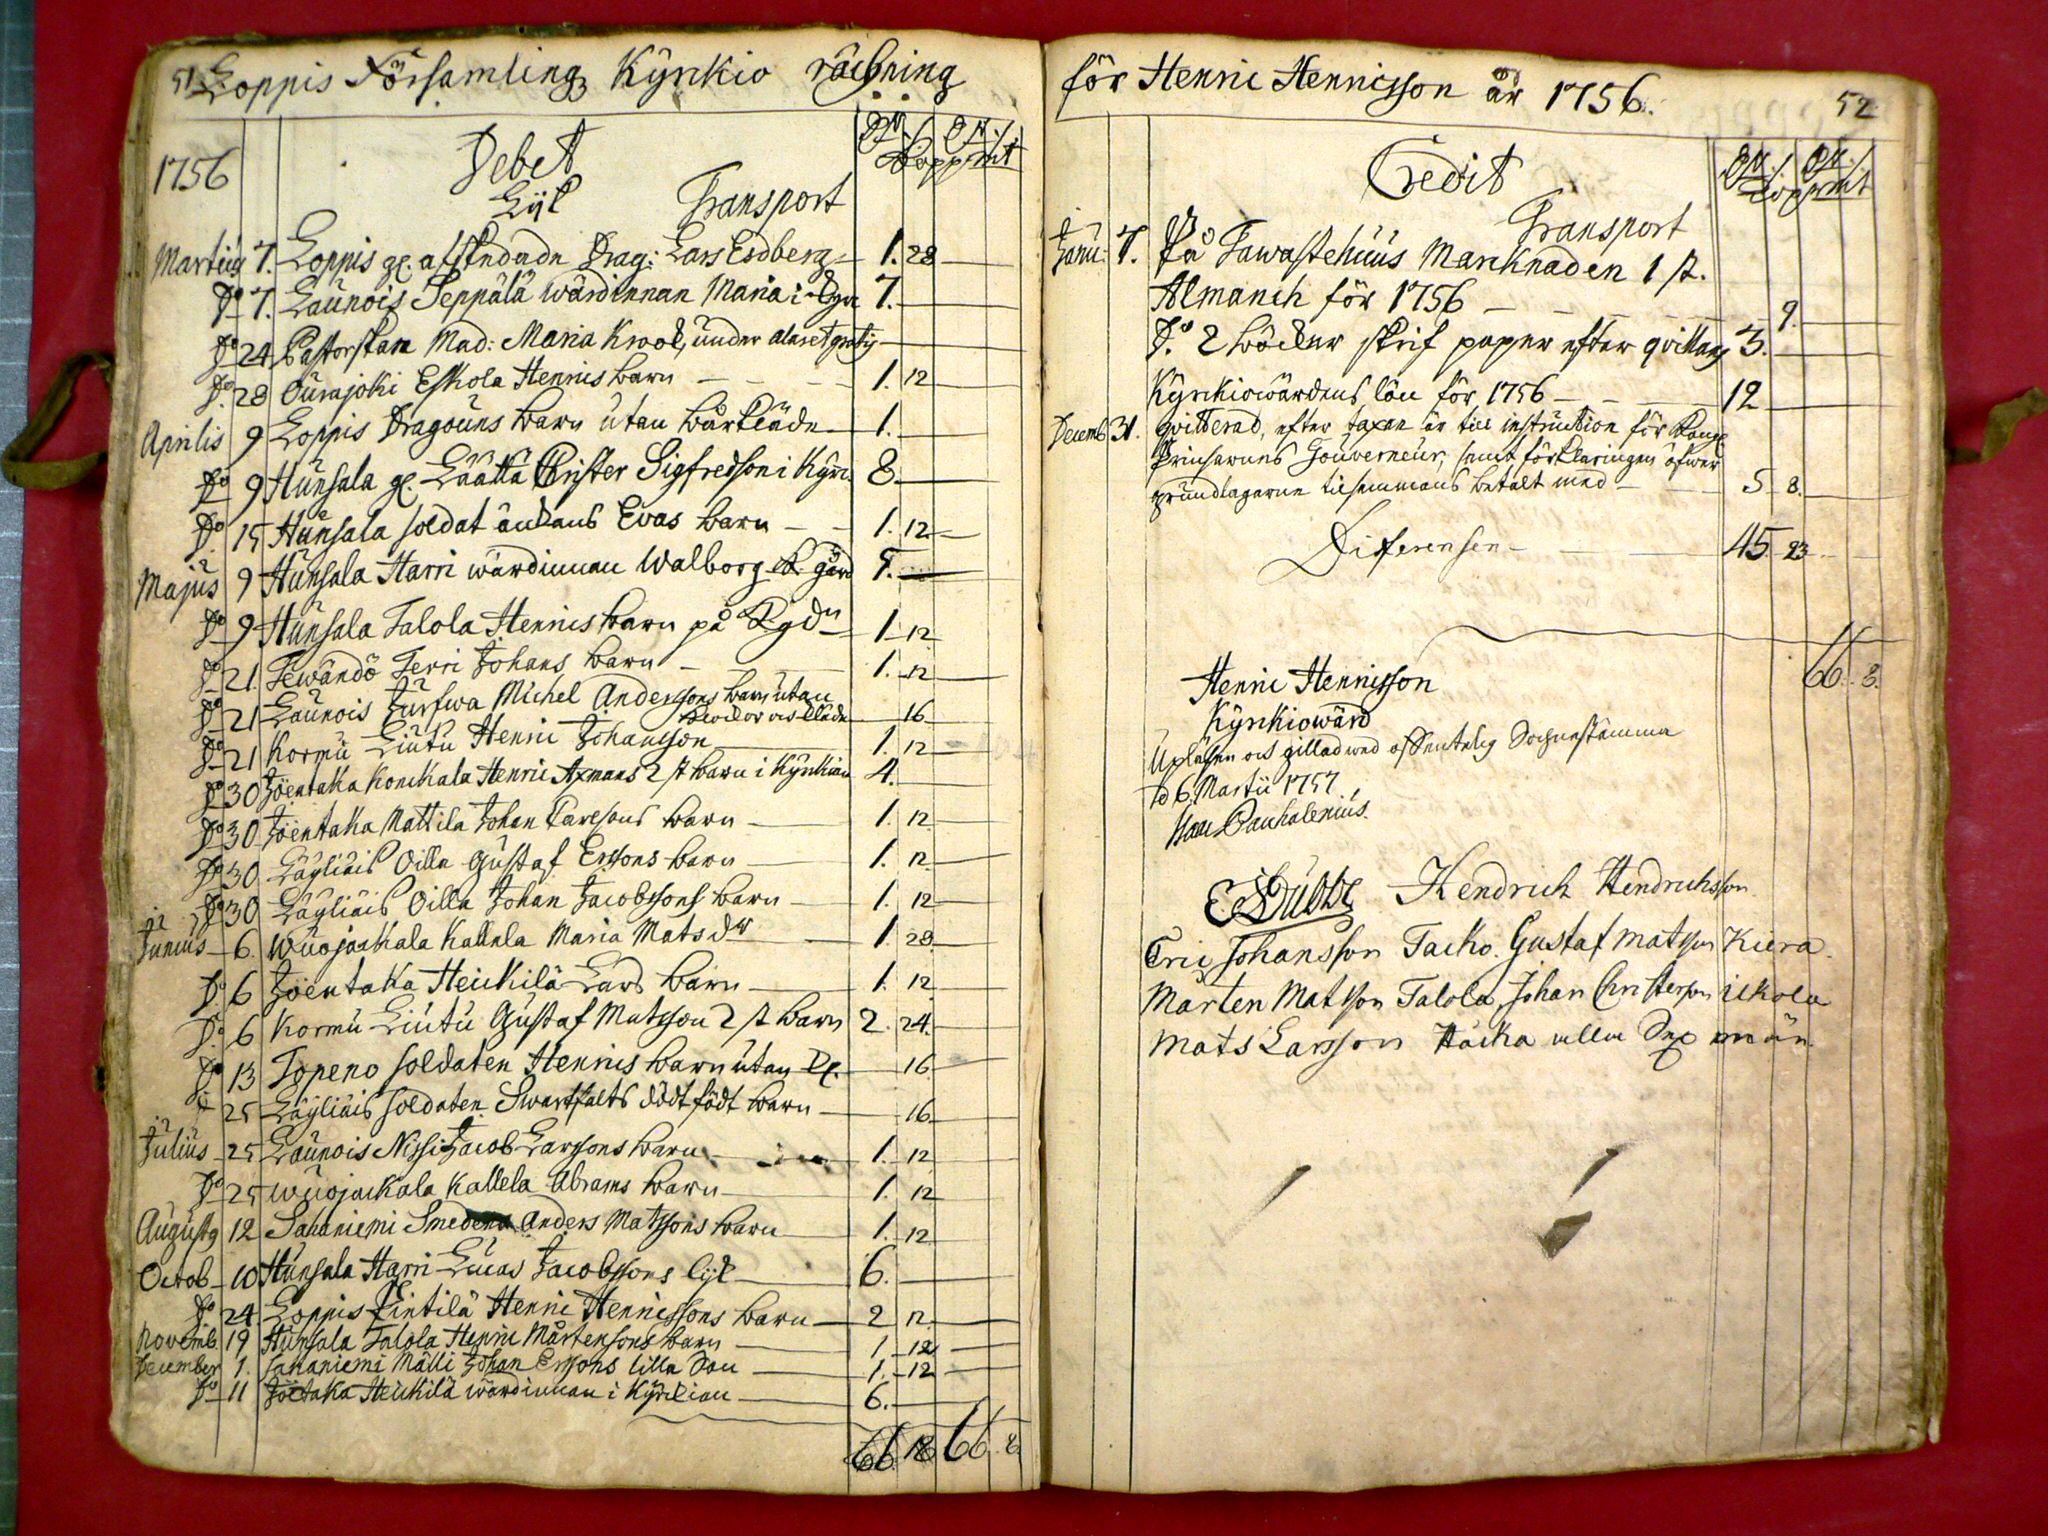 51. Loppis Församling Kÿrkio räkning
1756
Debet
Dlr
Koppmt
Lÿk Transport
Martiÿ 7. Loppis gl. afskedade Drag: Lars Esdberg 1. 28
Do 7. Laünois Seppälä wärdinnan Maria i 7.
Do 24 Pastorskan Mad: Maria Krook, ünder altaret gratis
Do 28 Oürajoki Eskola Henrics barn 1. 12
Aprilis 9 Loppis Dragouns barn ütan bårkläde 1.
Do 9 Hünsala gl. Läätta Christer Sigfredson i Kÿrk. 8.
Do 15 Hünsala soldat änkans Evas barn 1. 12
Majüs 9 Hünsala Harri wärdinnan Walborg K. gård
Do 9 Hünsala Talola Henrics barn på Kgdn 1 12
Do 21. Tewändö Terri Johans barn 1. 12
Do 21 Laünois Jürfwa Michel Anderssons barn ütan
klockor och kläde 16
Do 21 Kormü Liütü Henric Johansson 1. 12
Do 30 Jöentaka Konckala Henric Axmans 2 st barn i Kÿrkian 4.
Do 30 Jöentaka Mattila Johan Carlsons barn 1. 12
Do 30 Läÿliäis Oilla Güstaf Ersons barn 1. 12
Do 30 Läÿliäis Oilla Johan Jacobssons barn 1. 12
Jünius 6. Wüojaskala Kallela Maria Mats dr 1. 28
Do 6 Jöentaka Heickilä Lars barn 1. 12
Do 6 Kormü Liütü Güstaf Matsson 2 st barn 2. 24.
Do 13 Topeno soldaten Henrics barn ütan kl. 16.
25 Läÿliäis soldaten Swartfalts dödt födt barn 16.
Jülius 25 Laünois Nissi Jacob Larssons barn 1. 12
Do 25 Wüojaskala Kallela Abrams barn 1. 12
Aügüstÿ 12 Sahaniemi Smeden Anders Matssons barn 1. 12
Octob 10 Hünsala Harri Lücas Jacobssons lÿk 6.
Do 24 Loppis Pintilä Henric Henricssons barn 2 12
Novemb. 19 Hünsala Talola Henric Mårtensons barn 1 12
December 1. Sahaniemi Mälli Johan Erssons lilla Son 1. 12
Do 11 Jöetaka Heickilä wärdinnan i Kÿrkian 6.
66 18 66. 8
för Henric Henricsson år 1756. 52
Credit
Dlr
Koppmt
Transport
Janü: 7. På Tawastehüüs Marcknaden 1 st.
Almanch för 1756 9.
Do 2 böcker skrif paper efter qvittens 3.
Kÿrkiowärdens lön för 1756 12
Decemb 31. qvitterad, efter taxan är till instrüction för Kongl
Prinsarnes Goüverneür, samt förklaringen öfwer
gründlagarne tilsammans betalt med 5 8.
Differensen 45 23
66. 8.
Henric Henricsson
Kÿrkiowärd
Upläsen och gillad wed offentelig Sochnestämma
d 6. Martii 1757.
Pauhalenius.
Hendrich Hendrichsson
Eric Johansson Tacko. Gustaf Matsson Kiera.
Mårten Matsson Talola, Johan Christerson Uckola
Mats Larsson Häcka alla Sex män.